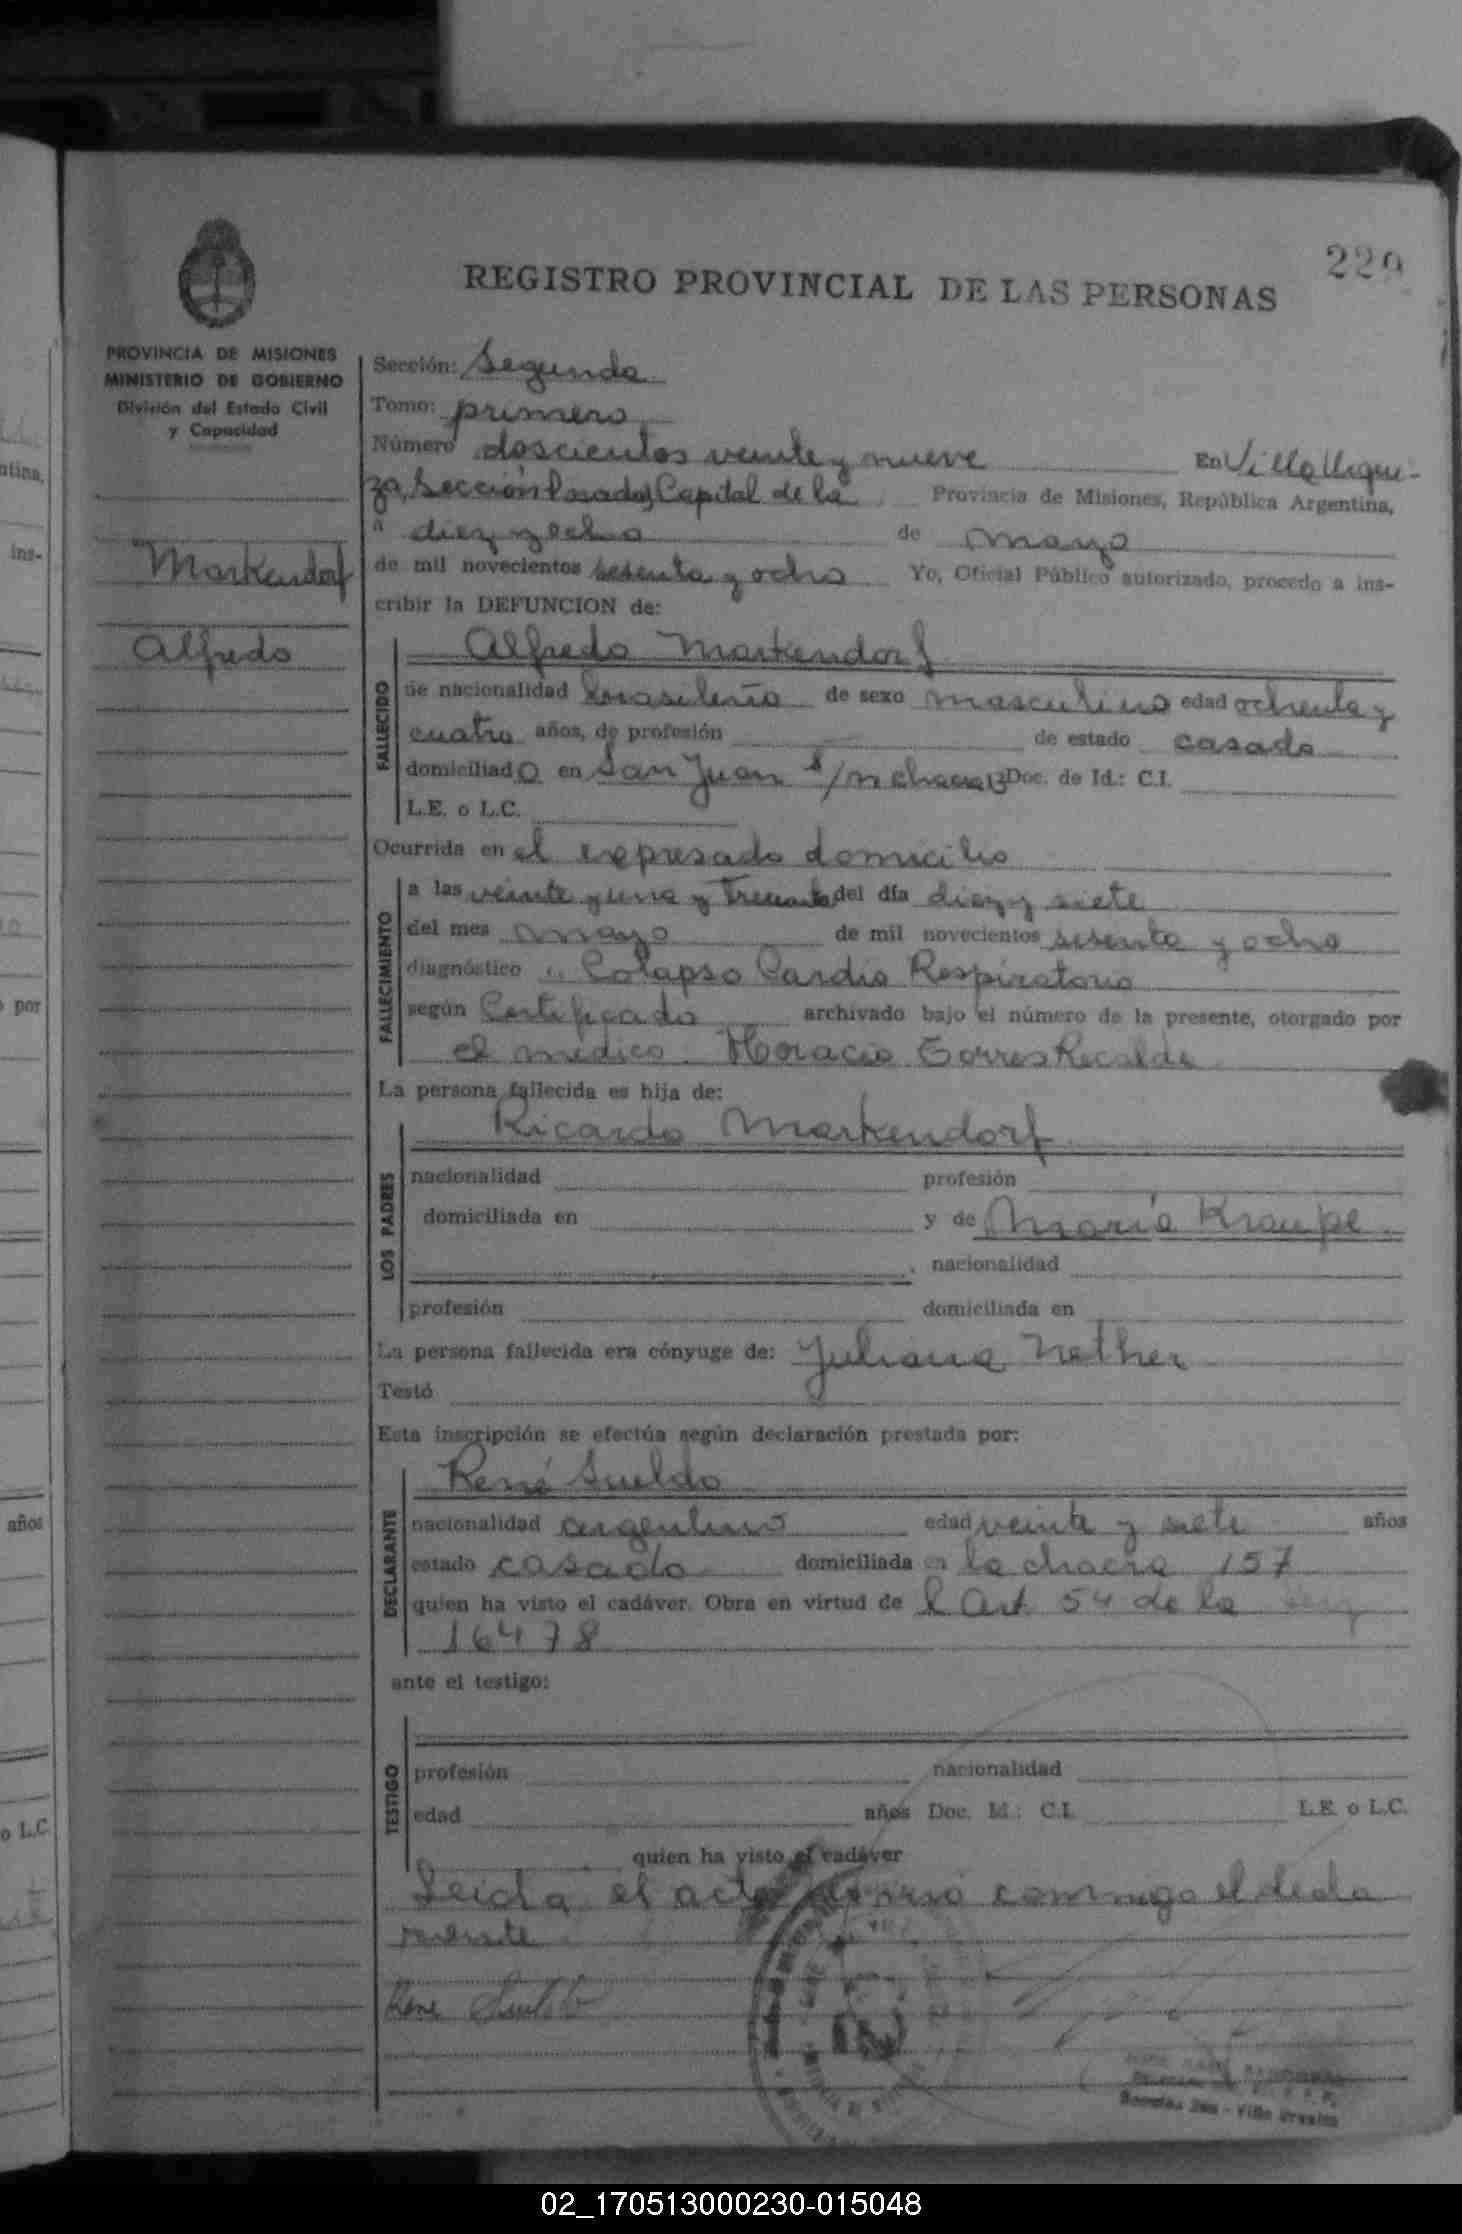 229
REGISTRO PROVINCIAL DE LAS PERSONAS
PROVINCIA DE MISIONES
MINISTERIO DE GOBIERNO
División del Estado Civil
y Capacidad
Markendorf
Alfredo
Sección: Segunda
Tomo: primero
Número doscientos veinte y nueve En Villa Urqui-
za, Sección Posadas Capital de la Provincia de Misiones, República Argentina,
a diez y ocho de mayo
de mil novecientos sesenta y ocho Yo, Oficial Público autorizado, procedo a ins-
cribir la DEFUNCION de:
FALLECIDO
Alfredo Markendorf
de nacionalidad brasileña de sexo masculino edad ochenta y
cuatro años, de profesión de estado casado
domiciliado en San Juan s/n chacra Doc. de Id.: C.I.
L.E. o L.C.
Ocurrida en el expresado domicilio
FALLECIMIENTO
a las veinte y una y treinta del día diez y siete
del mes mayo de mil novecientos sesenta y ocho
diagnóstico Colapso Cardio Respiratorio
según Certificado archivado bajo el número de la presente, otorgado por
el médico Horacio Torres Recalde
La persona fallecida es hija de:
LOS PADRES
Ricardo Markendorf
nacionalidad profesión
domiciliada en y de María Kraupe
nacionalidad
profesión domiciliada en
La persona fallecida era cónyuge de: Juliana Nether
Testó
Esta inscripción se efectúa según declaración prestada por:
DECLARANTE
René Sueldo
nacionalidad argentino edad veinte y siete años
estado casado domiciliada en la chacra 157
quien ha visto el cadáver. Obra en virtud de l Art. 54 de la Ley
16478
ante el testigo:
TESTIGO
profesión nacionalidad
edad años Doc. Id.: C.I. L.E. o L.C.
quien ha visto el cadáver
Leída el acta firmó conmigo el decla
rante
René Sueldo
02_170513000230-015048